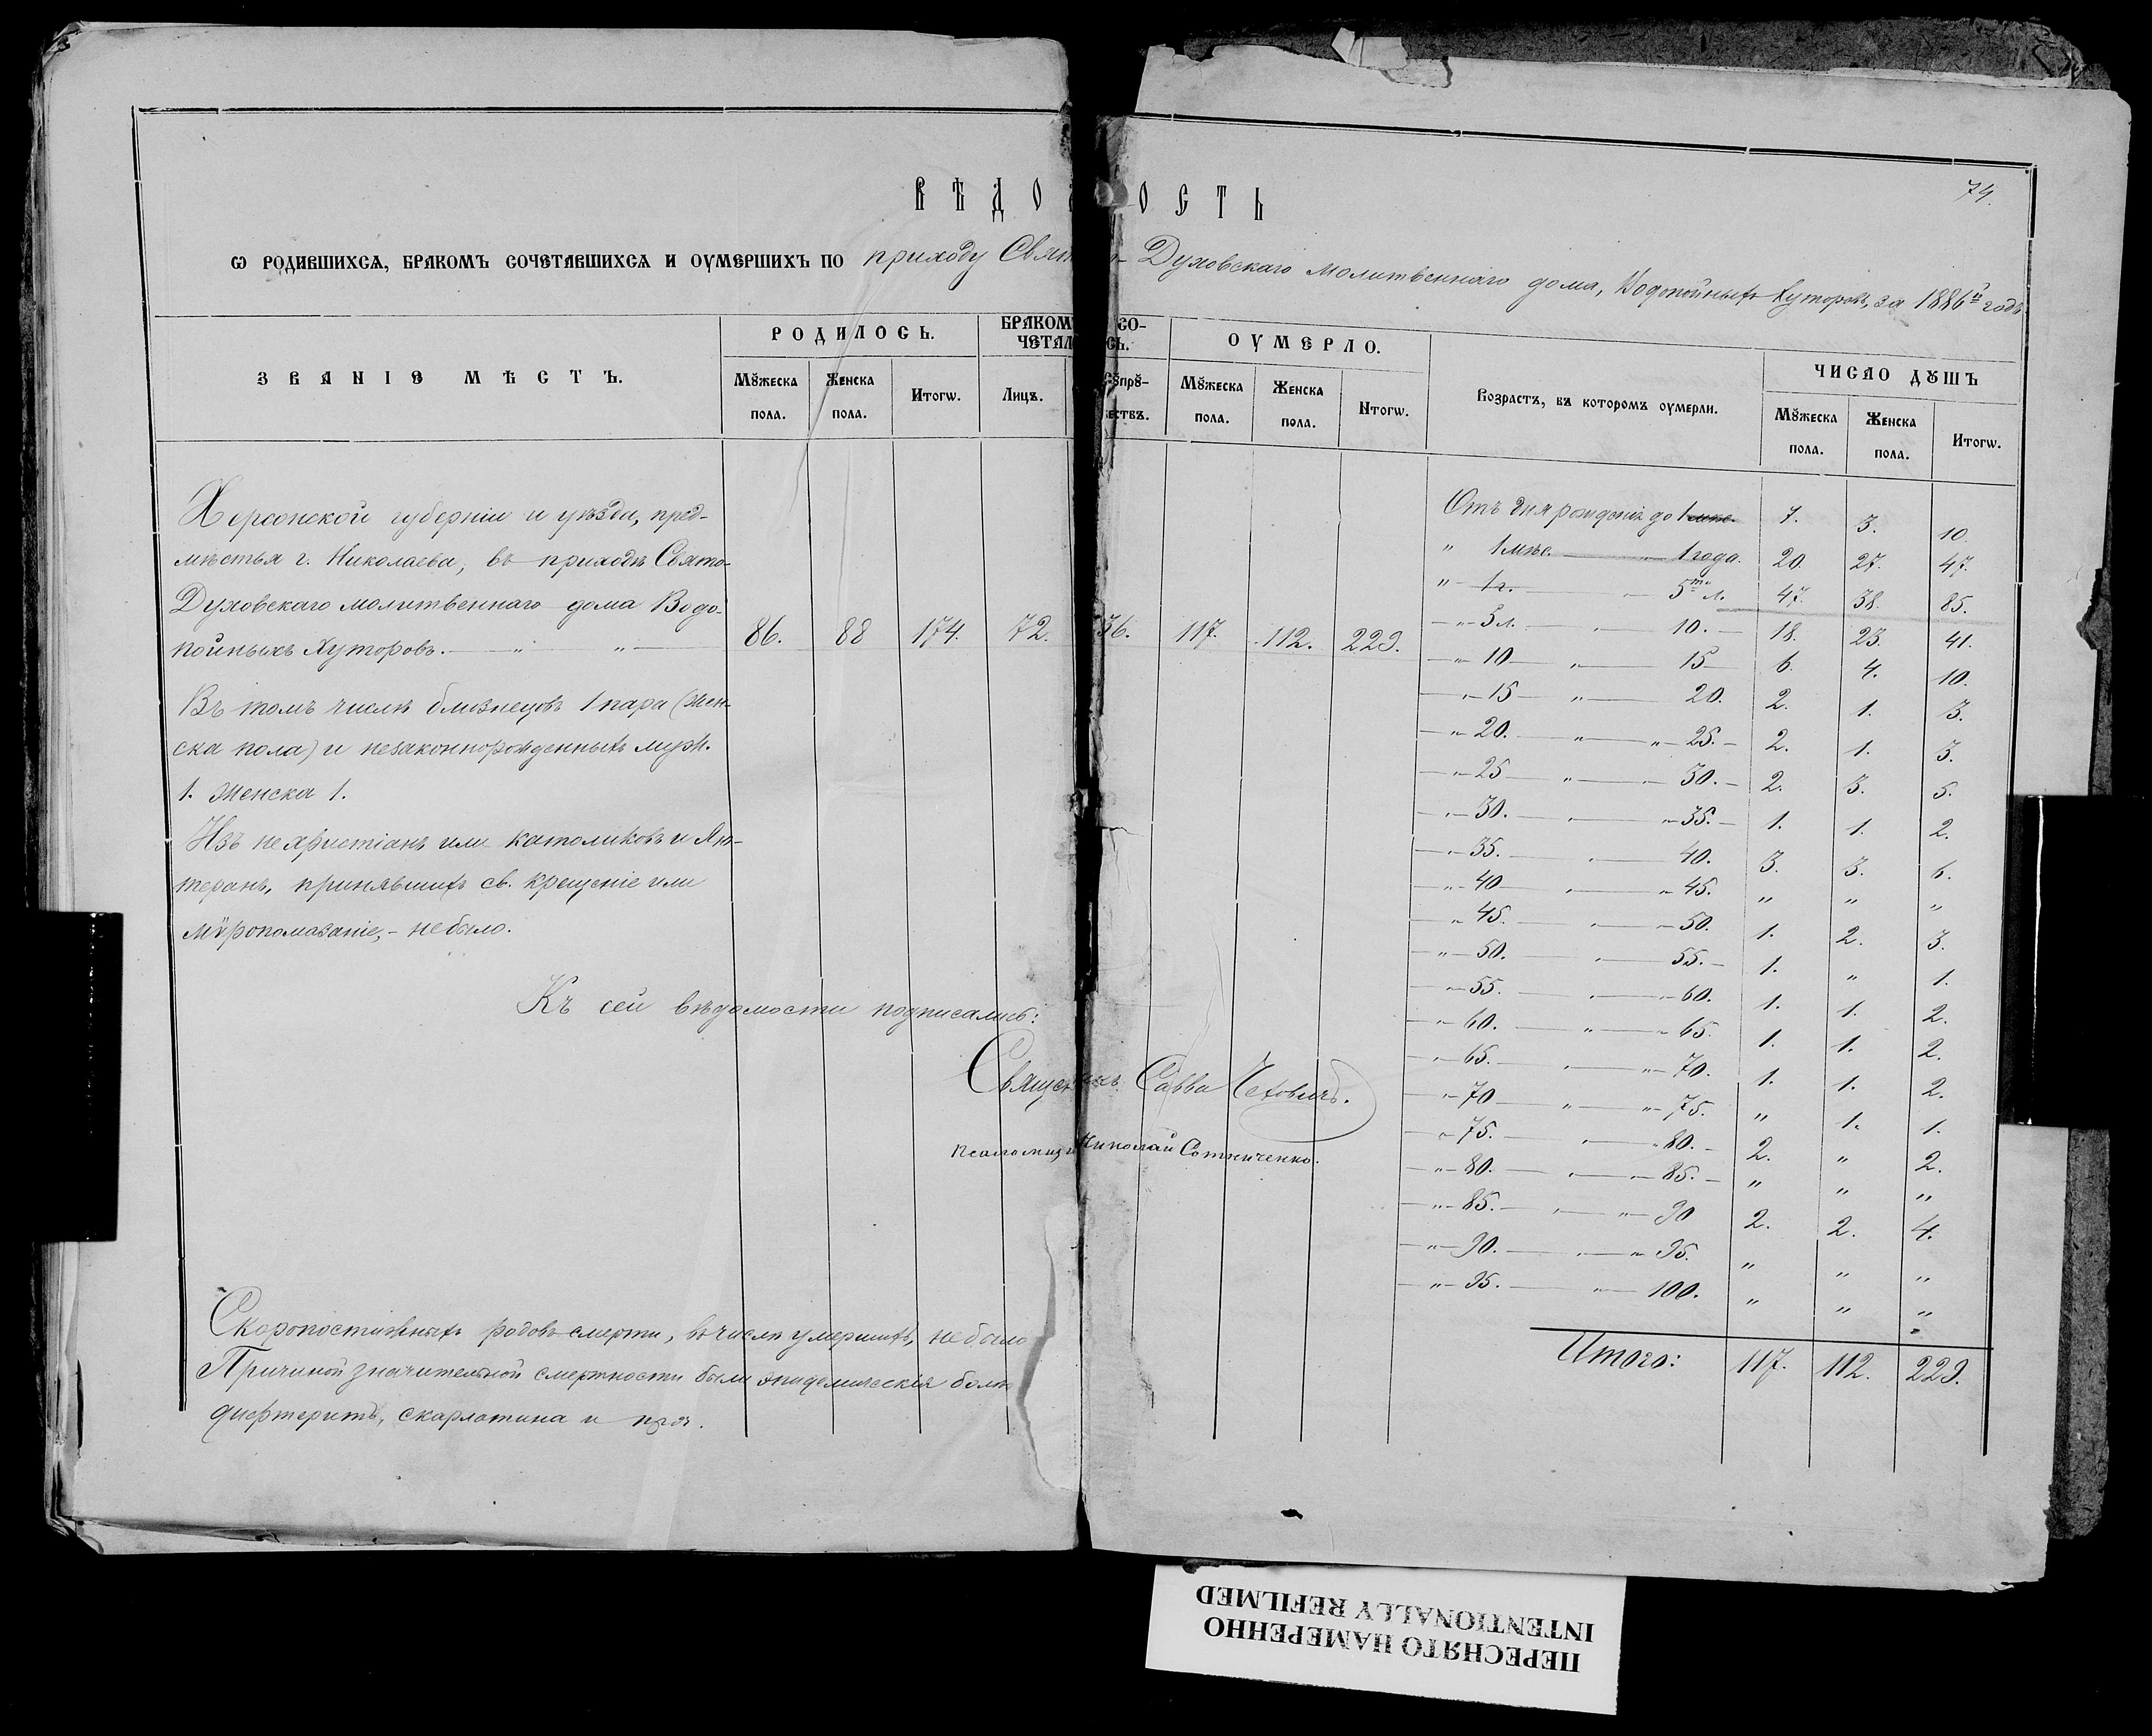 74.
ВѢДОМОСТЬ
Ѡ РОДИВШИХСѦ, БРАКОМЪ СОЧЕТАВШИХСѦ И ОУМЕРШИХЪ ПО приходу Свято-Духовскаго молитвеннаго дома, Водопойныхъ Хуторовъ, за 1886й годъ
ЗВАНІЕ МѢСТЪ.
РОДИЛОСЬ.
БРАКОМЪ СО-
ЧЕТАЛОСЬ.
ОУМЕРЛО.
Возрастъ, въ которомъ оумерли.
ЧИСЛО ДꙊШЪ
Мꙋжеска пола.
Женска пола.
Итогѡ.
Лицъ.
Сꙋпрꙋ-
жествъ.
Мꙋжеска пола.
Женска пола.
Итогѡ.
Мꙋжеска пола.
Женска пола.
Итогѡ.
Херсонской губерніи и уѣзда, пред-
мѣстья г. Николаева, въ приходѣ Свято-
Духовскаго молитвеннаго дома Водо-
пойныхъ Хуторовъ. — " — " — 86. 88 174. 72. 36. 117. 112. 229.
Въ томъ числѣ близнецовъ 1 пара (жен-
ска пола) и незаконнорожденныхъ муж.
1. Женска 1.
Изъ нехристіанъ или католиковъ и Лю-
теранъ, принявшихъ св. крещеніе или
мѵропомазаніе, - небыло.
Къ сей вѣдомости подписались:
Священникъ Савва Чеховичъ.
Псаломщикъ Николай Сотниченко.
Скоропостижныхъ родовъ смерти, въ числѣ умершихъ, не было
Причиной значительной смертности были эпидемическія болѣ
дифтеритъ, скарлатина и проч.
Отъ дня рожденія до 1 мѣс. 7. 3. 10.
" 1 мѣс. — " — 1 года. 20. 27. 47.
" 1 г. — " — 5ти л. 47. 38. 85.
" 5 л. — " — 10. 18. 23. 41.
" 10 — " — 15 6. 4. 10.
" 15 — " — 20. 2. 1. 3.
" 20. — " — 25. 2. 1. 3.
" 25 — " — 30. 2. 3. 5.
" 30. — " — 35. 1. 1. 2.
" 35. — " — 40. 3. 3. 6.
" 40 — " — 45. " " "
" 45. — " — 50. 1. 2. 3.
" 50. — " — 55. 1. " 1.
" 55. — " — 60. 1. 1. 2.
" 60. — " — 65. 1. 1. 2.
" 65. — " — 70. 1. 1. 2.
" 70 — " — 75. " 1. 1.
" 75. — " — 80. 2. " 2.
" 80. — " — 85. " " "
" 85. — " — 90 2. 2. 4.
" 90. — " — 95. " " "
" 95. — " — 100. " " "
Итого: 117. 112. 229.
ПЕРЕСНЯТО НАМЕРЕННО
INTENTIONALLY REFILMED